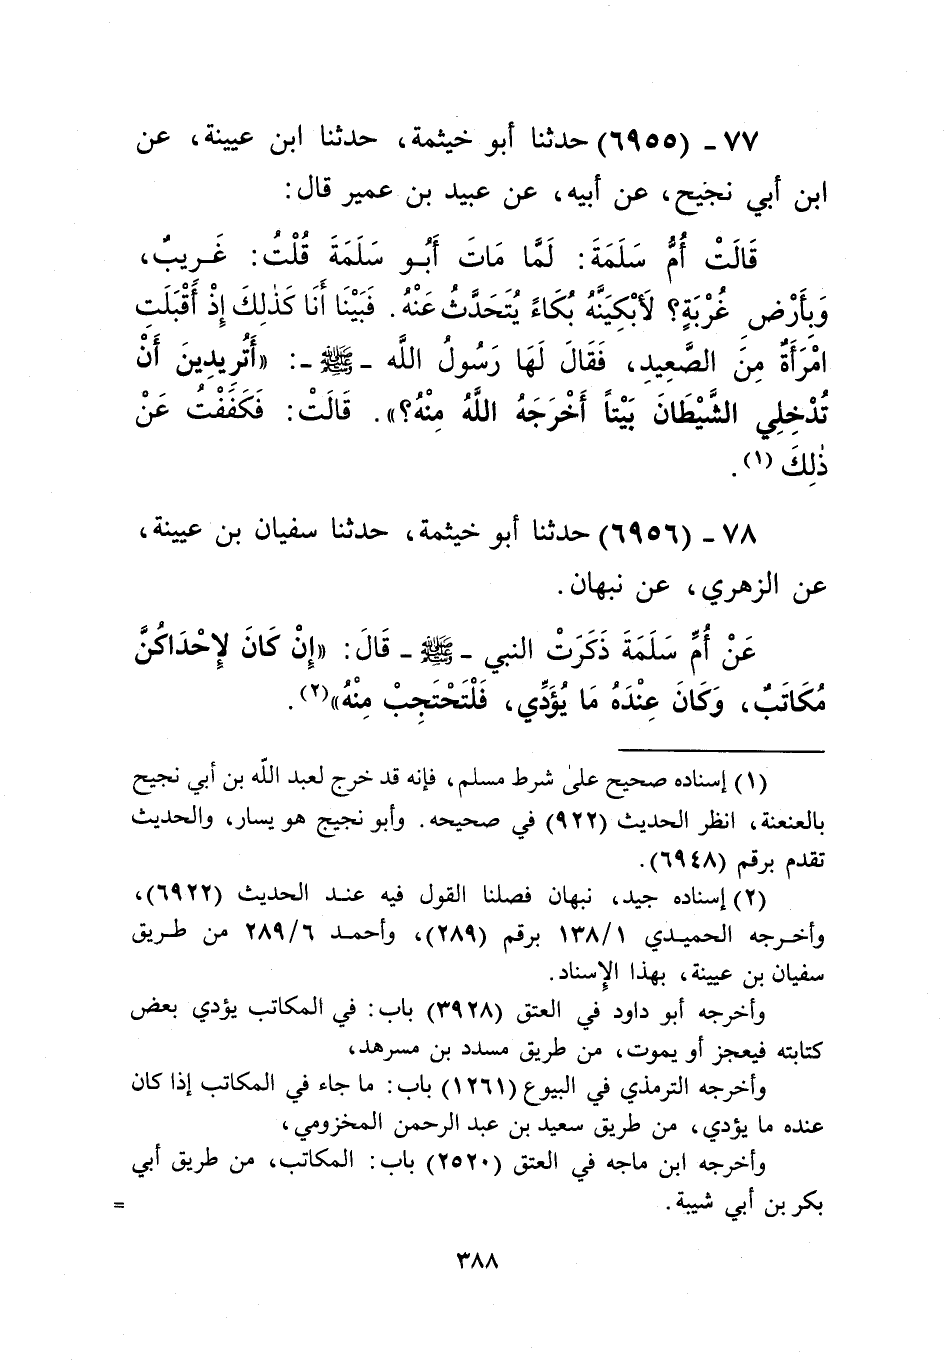 ٧٧ - (٦٩٥٥) حدثنا أبو خيثمة، حدثنا ابن عيينة، عن
ابن أبي نجيح، عن أبيه، عن عبيد بن عمير قال:
قَالَتْ أُمُّ سَلَمَةَ: لَمَّا مَاتَ أَبُو سَلَمَةَ قُلْتُ: غَرِيبٌ،
وَبِأَرْضِ غُرْبَةٍ؟ لَأَبْكِيَنَّهُ بُكَاءً يُتَحَدَّثُ عَنْهُ. فَبَيْنَا أَنَا كَذٰلِكَ إِذْ أَقْبَلَتِ
امْرَأَةٌ مِنَ الصَّعِيدِ، فَقَالَ لَهَا رَسُولُ اللَّه - ﷺ -: «أَتُرِيدِينَ أَنْ
تُدْخِلِي الشَّيْطَانَ بَيْتاً أَخْرَجَهُ اللَّهُ مِنْهُ؟». قَالَتْ: فَكَفَفْتُ عَنْ
ذٰلِكَ (١).
٧٨ - (٦٩٥٦) حدثنا أبو خيثمة، حدثنا سفيان بن عيينة،
عن الزهري، عن نبهان.
عَنْ أُمِّ سَلَمَةَ ذَكَرَتْ النبي - ﷺ - قَالَ: «إِنْ كَانَ لِإِحْدَاكُنَّ
مُكَاتَبٌ، وَكَانَ عِنْدَهُ مَا يُؤَدِّي، فَلْتَحْتَجِبْ مِنْهُ»(٢).
(١) إسناده صحيح علىٰ شرط مسلم، فإنه قد خرج لعبد اللّه بن أبي نجيح
بالعنعنة، انظر الحديث (٩٢٢) في صحيحه. وأبو نجيح هو يسار، والحديث
تقدم برقم (٦٩٤٨).
(٢) إسناده جيد، نبهان فصلنا القول فيه عند الحديث (٦٩٢٢)،
وأخرجه الحميدي ١٣٨/١ برقم (٢٨٩)، وأحمد ٢٨٩/٦ من طريق
سفيان بن عيينة، بهذا الإسناد.
وأخرجه أبو داود في العتق (٣٩٢٨) باب: في المكاتب يؤدي بعض
كتابته فيعجز أو يموت، من طريق مسدد بن مسرهد،
وأخرجه الترمذي في البيوع (١٢٦١) باب: ما جاء في المكاتب إذا كان
عنده ما يؤدي، من طريق سعيد بن عبد الرحمن المخزومي،
وأخرجه ابن ماجه في العتق (٢٥٢٠) باب: المكاتب، من طريق أبي
بكر بن أبي شيبة. =
٣٨٨